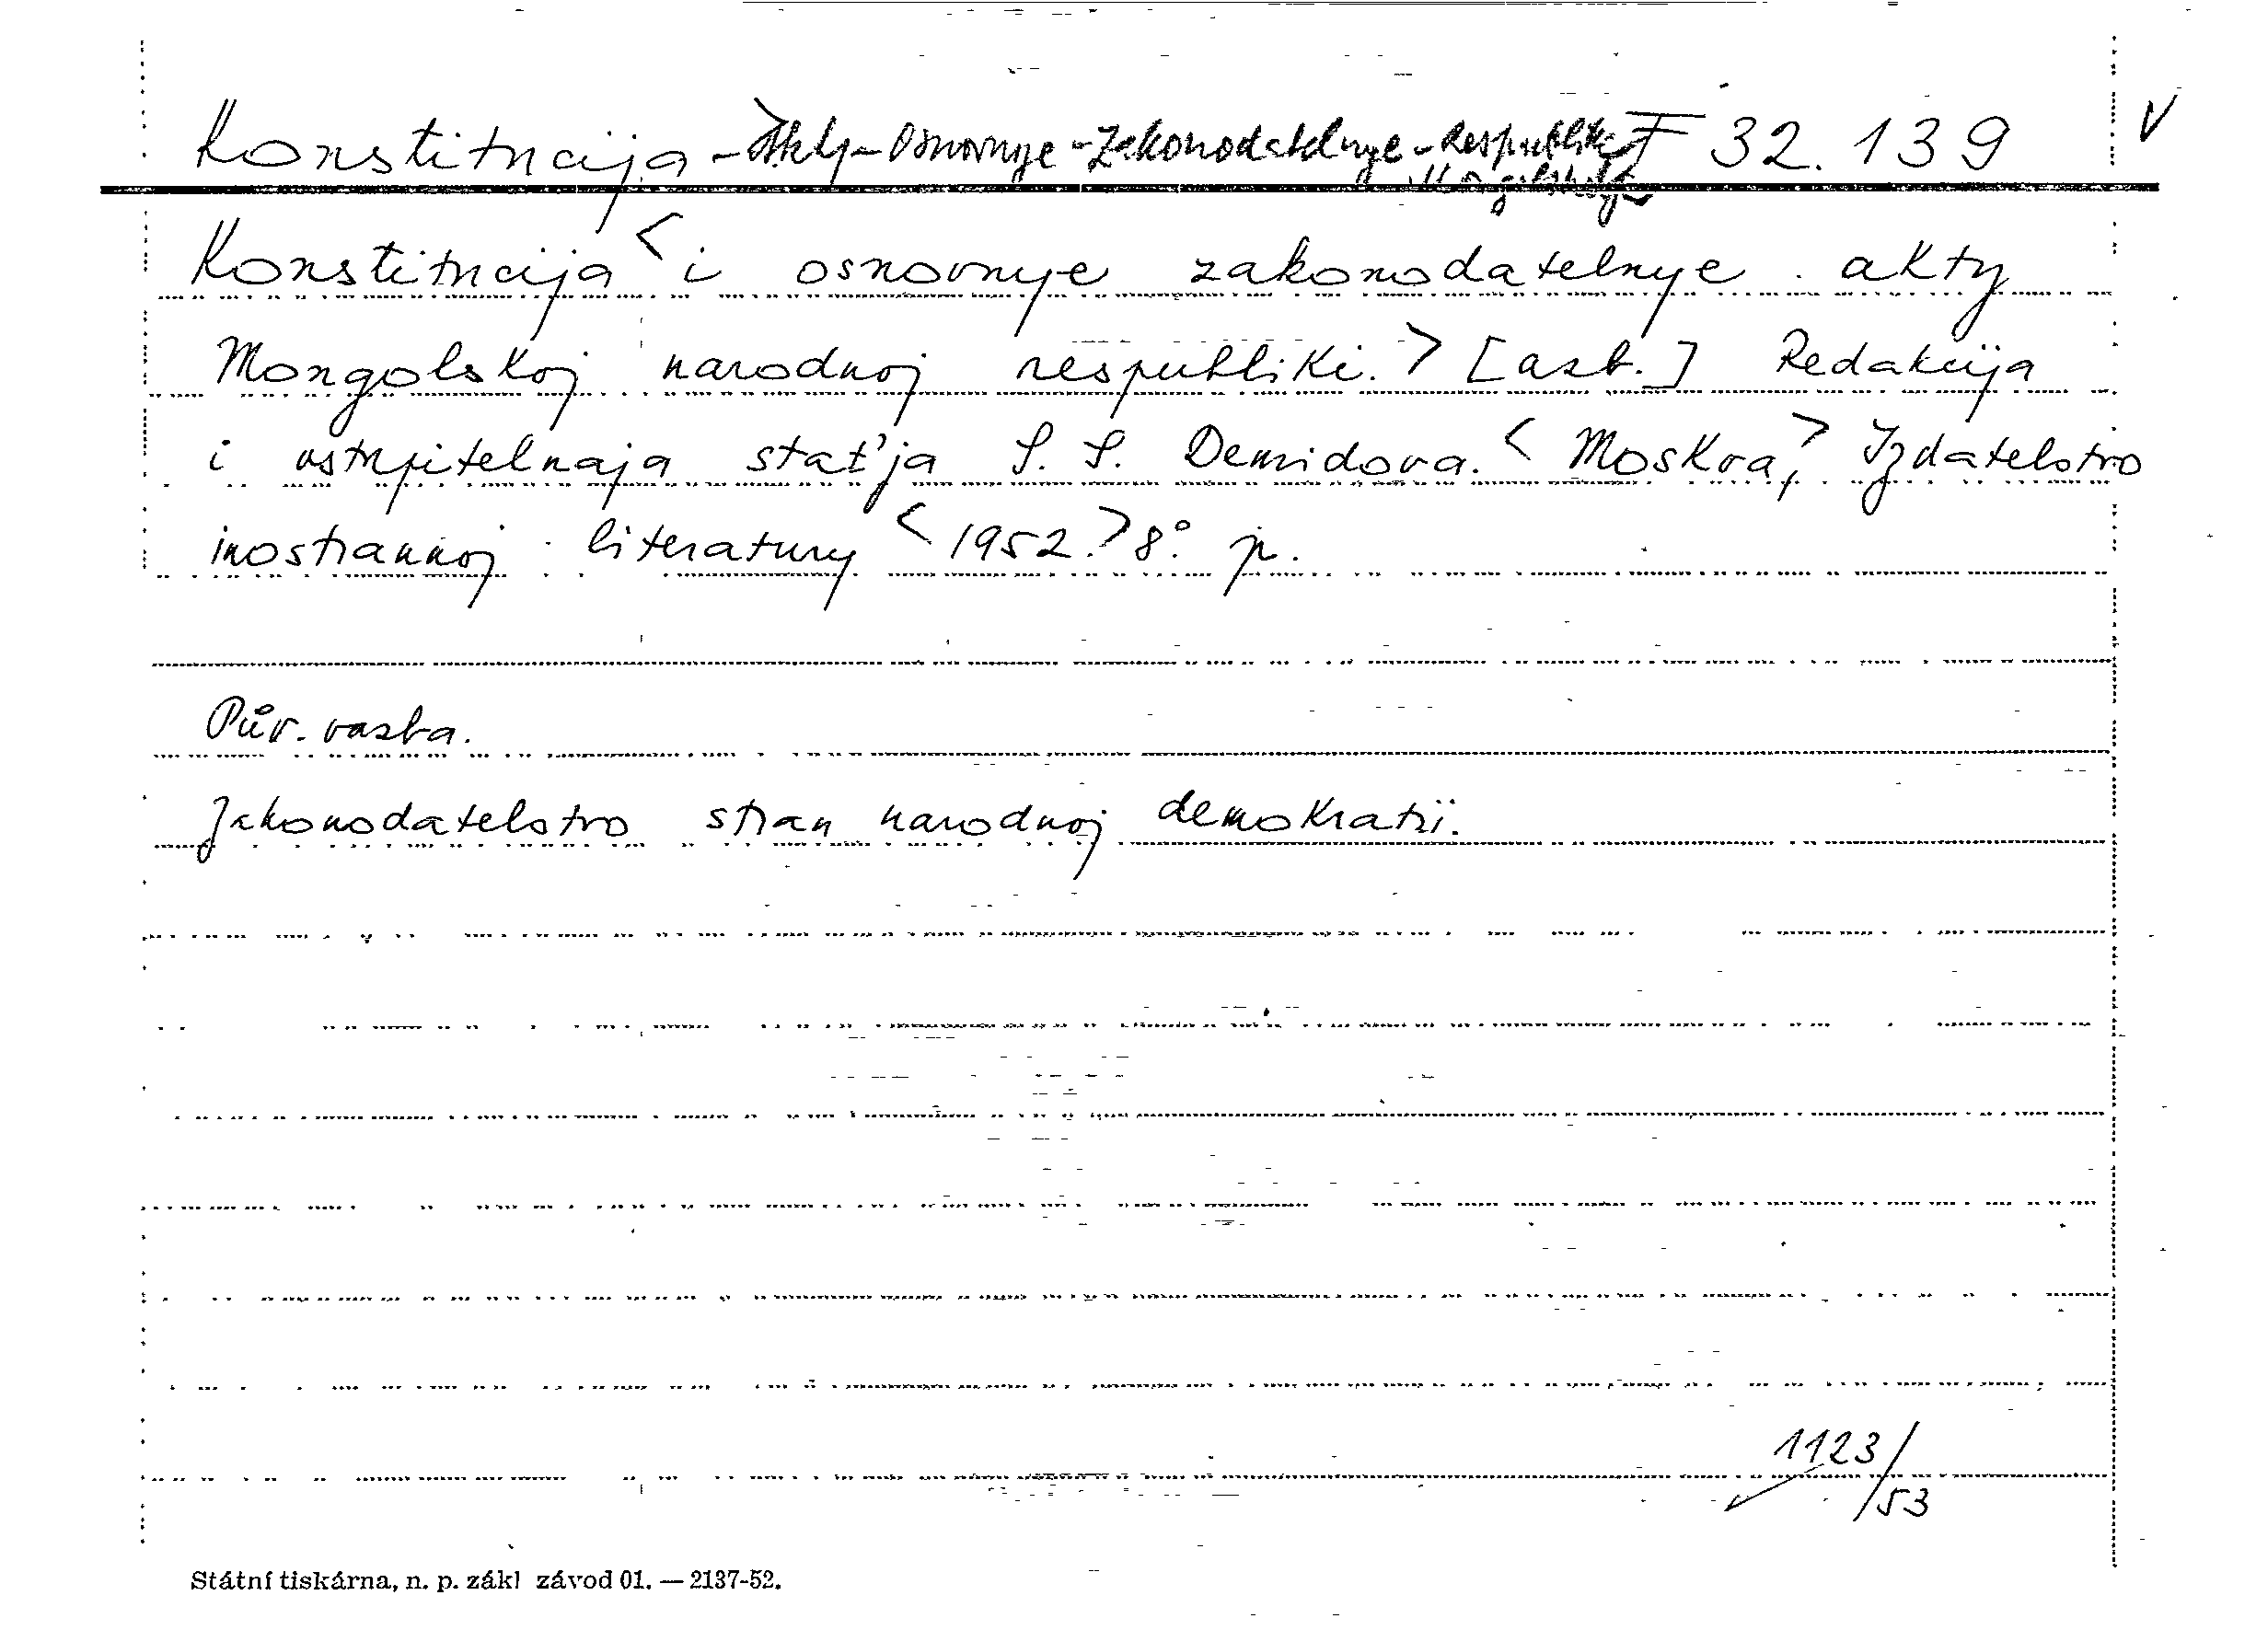 Konstitucija - Akty - Osnovnye - Zakonodatelnye - Respublika F 32.139 V
Mongolskaja
Konstitucija < i osnovnye zakonodatelnye akty
Mongolskoj narodnoj respubliki. > [azb.] Redakcija
i vstupitelnaja stat'ja S. S. Demidova. < Moskva, > Izdatelstvo
inostrannoj literatury < 1952. > 8° p.
Pův. vazba.
Zakonodatelstvo stran narodnoj demokratii.
1123/53
Státní tiskárna, n. p. zákl závod 01. — 2137-52.